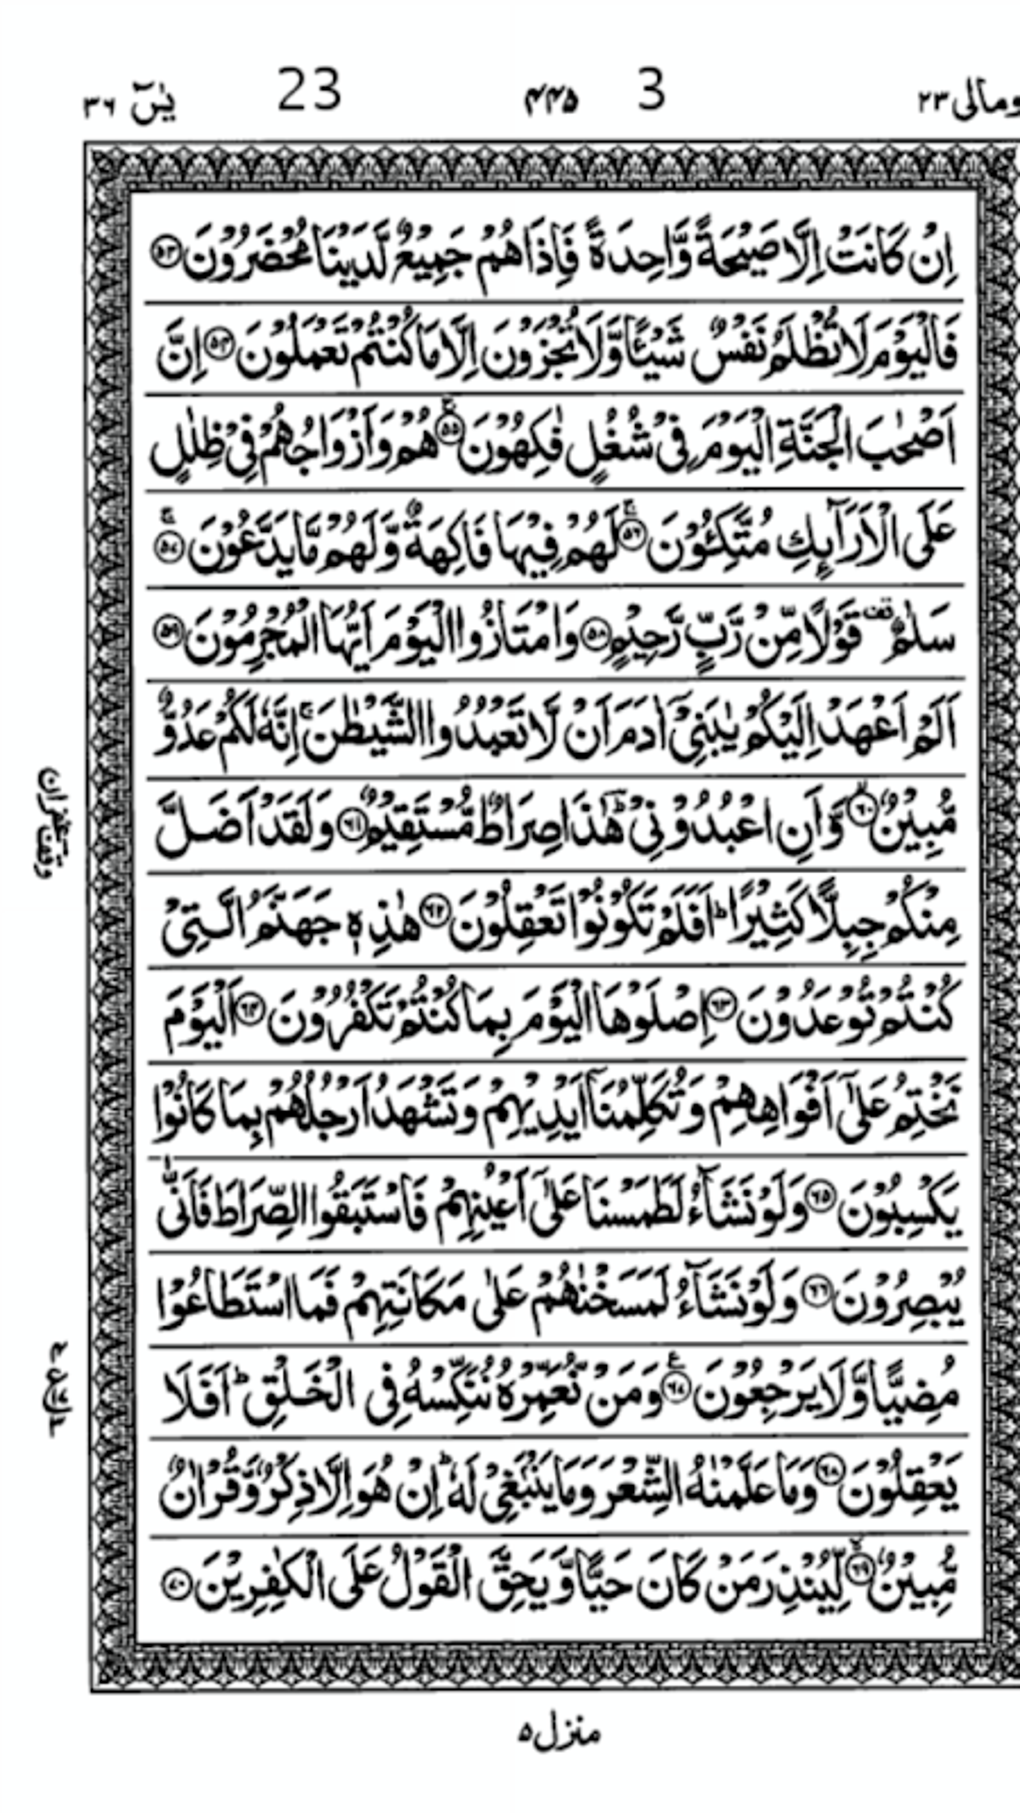 ومالی ٢٣ 3 ۴۴۵ 23 يٰسٓ ٣٦
اِنْ كَانَتْ اِلَّا صَيْحَةً وَّاحِدَةً فَاِذَا هُمْ جَمِيْعٌ لَّدَيْنَا مُحْضَرُوْنَ ۝٥٣
فَالْيَوْمَ لَا تُظْلَمُ نَفْسٌ شَيْـًٔا وَّلَا تُجْزَوْنَ اِلَّا مَا كُنْتُمْ تَعْمَلُوْنَ ۝٥٤ اِنَّ
اَصْحٰبَ الْجَنَّةِ الْيَوْمَ فِيْ شُغُلٍ فٰكِهُوْنَ ۝٥٥ۚ هُمْ وَاَزْوَاجُهُمْ فِيْ ظِلٰلٍ
عَلَى الْاَرَآىِٕكِ مُتَّكِـُٔوْنَ ۝٥٦ۚ لَهُمْ فِيْهَا فَاكِهَةٌ وَّلَهُمْ مَّا يَدَّعُوْنَ ۝٥٧ۚ
سَلٰمٌ ࣞ قَوْلًا مِّنْ رَّبٍّ رَّحِيْمٍ ۝٥٨ وَامْتَازُوا الْيَوْمَ اَيُّهَا الْمُجْرِمُوْنَ ۝٥٩
اَلَمْ اَعْهَدْ اِلَيْكُمْ يٰبَنِيْٓ اٰدَمَ اَنْ لَّا تَعْبُدُوا الشَّيْطٰنَ ۚ اِنَّهٗ لَكُمْ عَدُوٌّ
مُّبِيْنٌ ۝٦٠ۙ وَّاَنِ اعْبُدُوْنِيْ ؕ هٰذَا صِرَاطٌ مُّسْتَقِيْمٌ ۝٦١ وَلَقَدْ اَضَلَّ
مِنْكُمْ جِبِلًّا كَثِيْرًا ؕ اَفَلَمْ تَكُوْنُوْا تَعْقِلُوْنَ ۝٦٢ هٰذِهٖ جَهَنَّمُ الَّتِيْ
كُنْتُمْ تُوْعَدُوْنَ ۝٦٣ اِصْلَوْهَا الْيَوْمَ بِمَا كُنْتُمْ تَكْفُرُوْنَ ۝٦٤ اَلْيَوْمَ
نَخْتِمُ عَلٰٓى اَفْوَاهِهِمْ وَتُكَلِّمُنَآ اَيْدِيْهِمْ وَتَشْهَدُ اَرْجُلُهُمْ بِمَا كَانُوْا
يَكْسِبُوْنَ ۝٦٥ وَلَوْ نَشَآءُ لَطَمَسْنَا عَلٰٓى اَعْيُنِهِمْ فَاسْتَبَقُوا الصِّرَاطَ فَاَنّٰى
يُبْصِرُوْنَ ۝٦٦ وَلَوْ نَشَآءُ لَمَسَخْنٰهُمْ عَلٰى مَكَانَتِهِمْ فَمَا اسْتَطَاعُوْا
مُضِيًّا وَّلَا يَرْجِعُوْنَ ۝٦٧ۧ وَمَنْ نُّعَمِّرْهُ نُنَكِّسْهُ فِي الْخَلْقِ ؕ اَفَلَا
يَعْقِلُوْنَ ۝٦٨ وَمَا عَلَّمْنٰهُ الشِّعْرَ وَمَا يَنْۢبَغِيْ لَهٗ ؕ اِنْ هُوَ اِلَّا ذِكْرٌ وَّقُرْاٰنٌ
مُّبِيْنٌ ۝٦٩ۙ لِّيُنْذِرَ مَنْ كَانَ حَيًّا وَّيَحِقَّ الْقَوْلُ عَلَى الْكٰفِرِيْنَ ۝٧٠
منزل ۵
وقف غفران